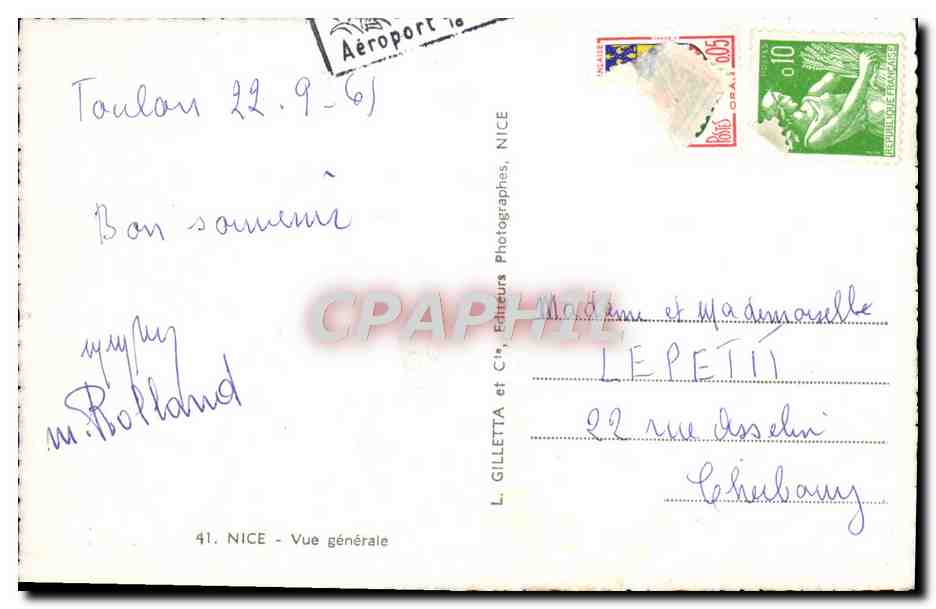 Aéroport
Toulon 22.9-61
Bon souvenir
m. Rolland
41. NICE - Vue générale
L. GILLETTA et Cie, Editeurs Photographes, NICE
CPAPHIL
0,05
POSTES
ORA
POSTES
0,10
REPUBLIQUE FRANÇAISE
Madame et Mademoiselle
LEPETIT
22 rue Asselin
Cherbourg